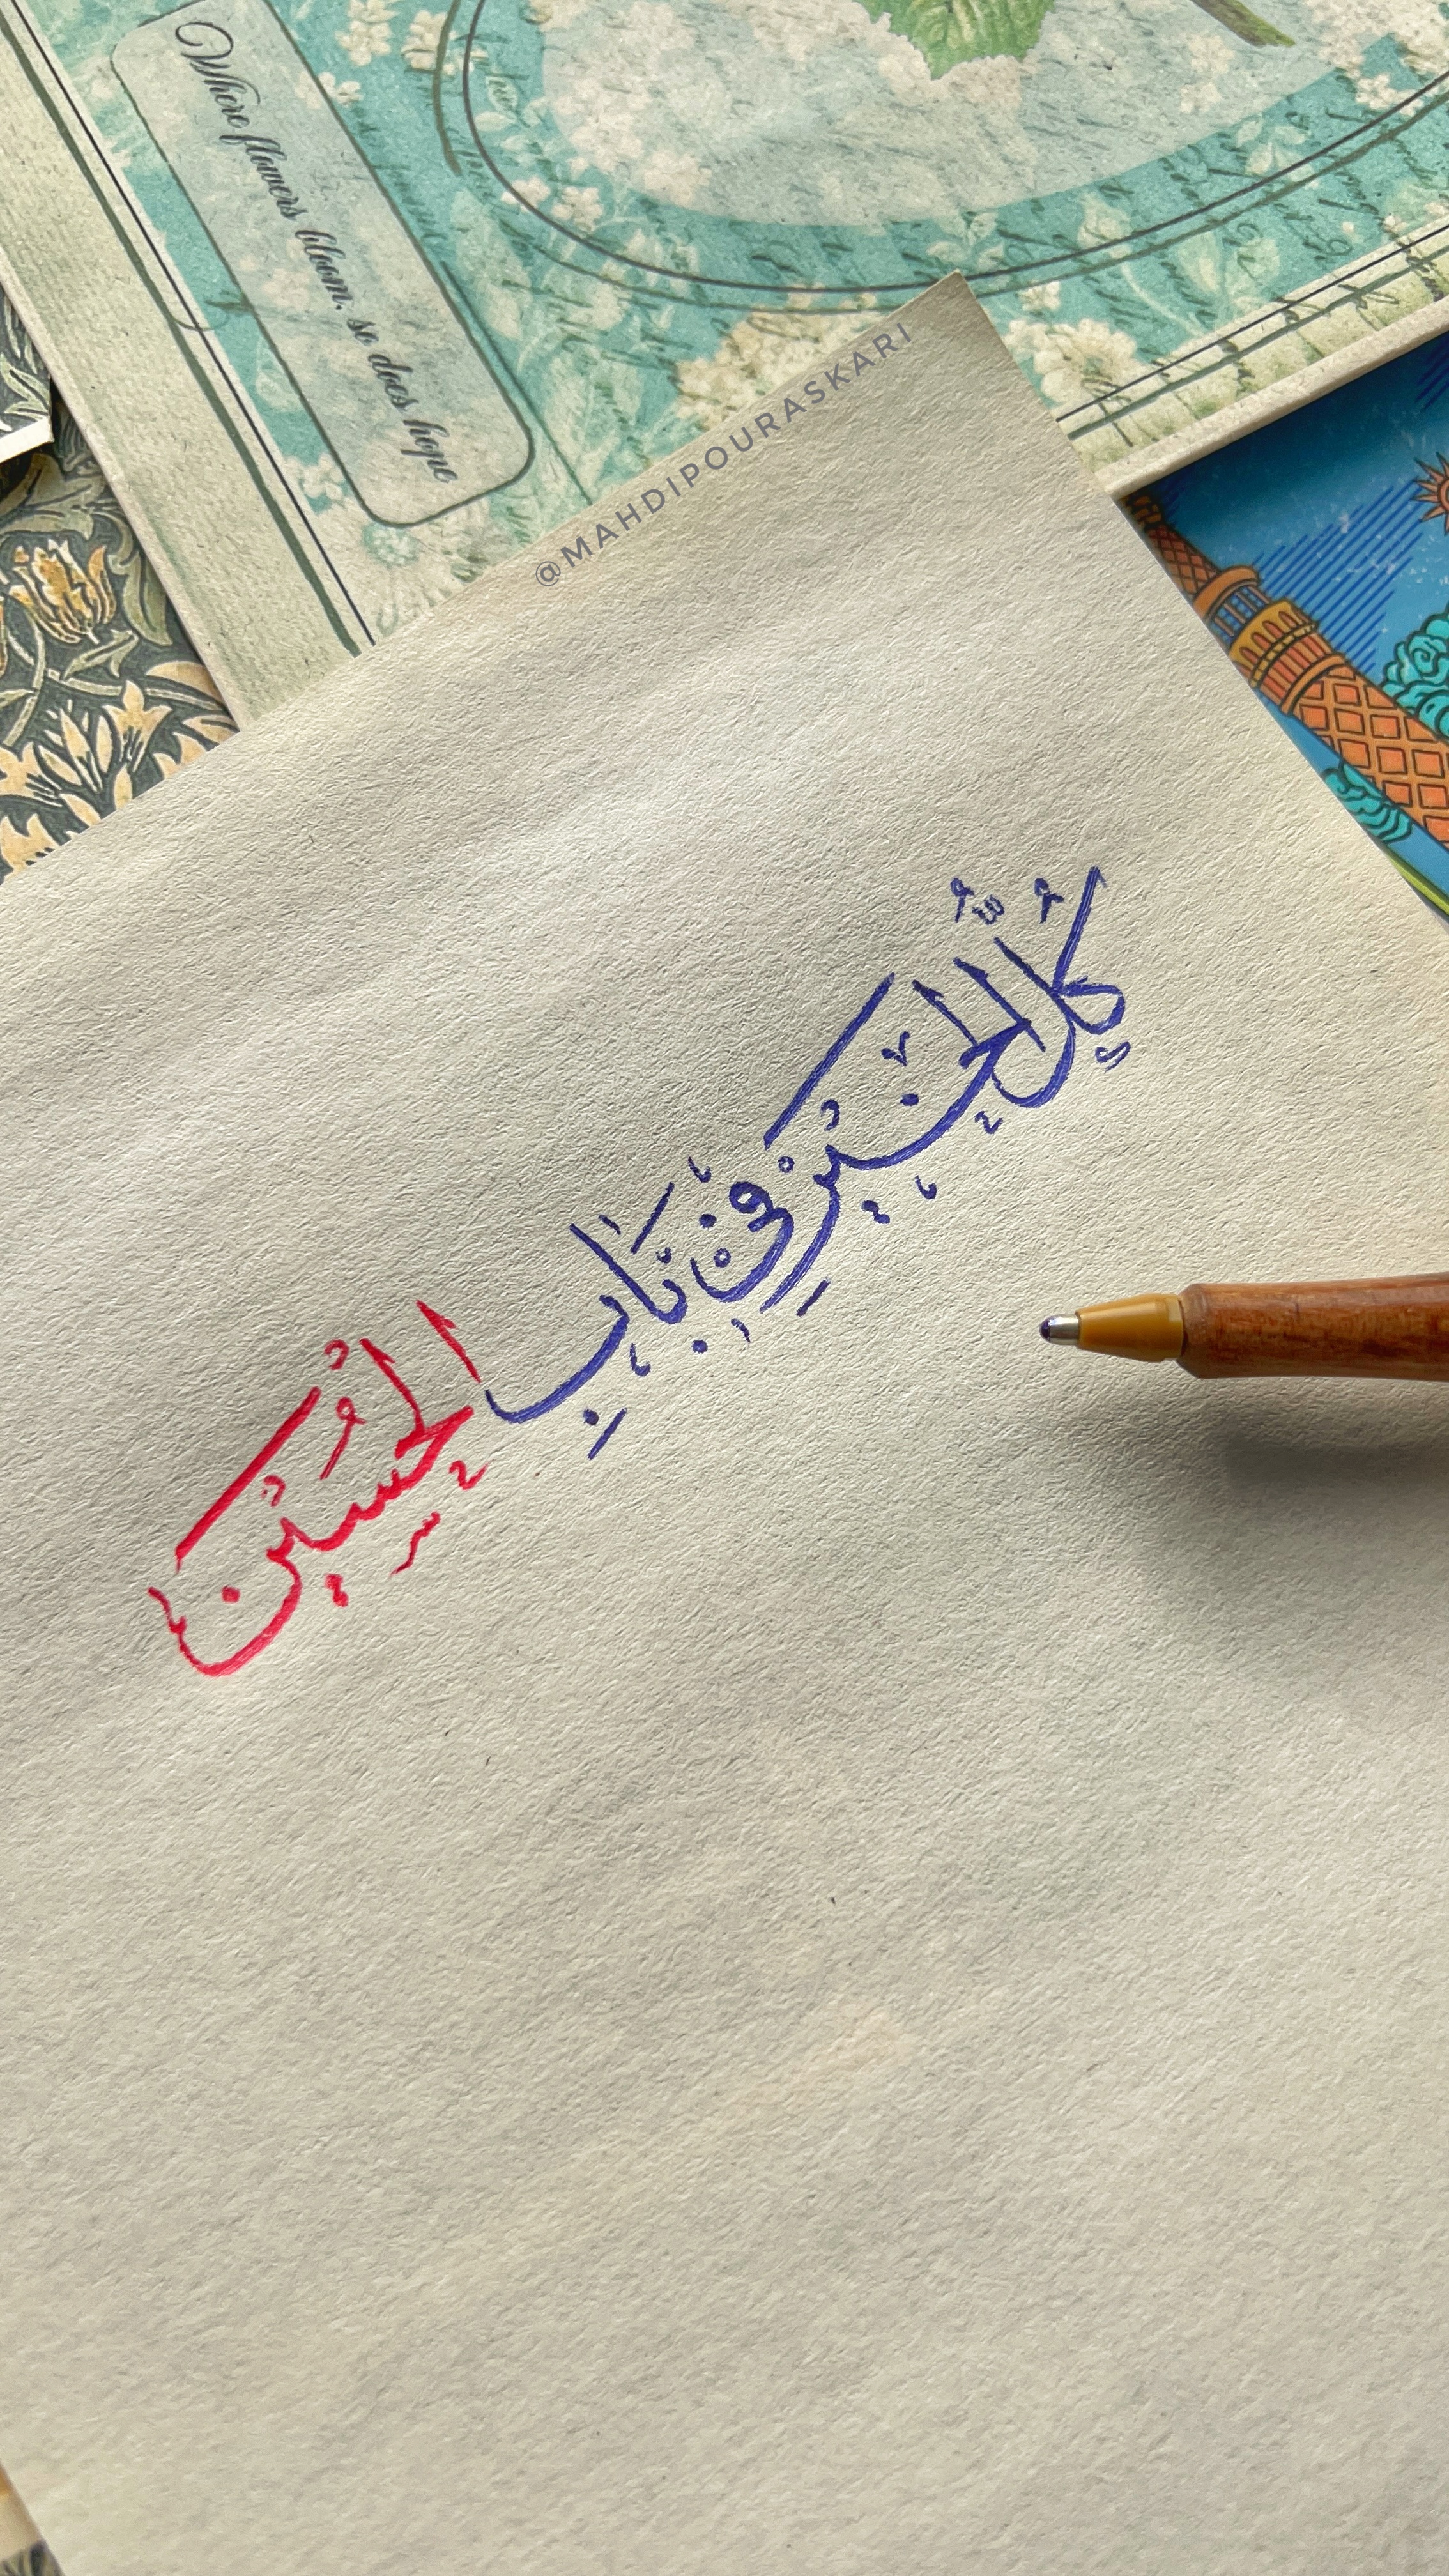 Where flowers bloom, so does hope
@MAHDIPOURASKARI
كُلُّ الْخَيْرِ فِي بَابِ الْحُسَيْن